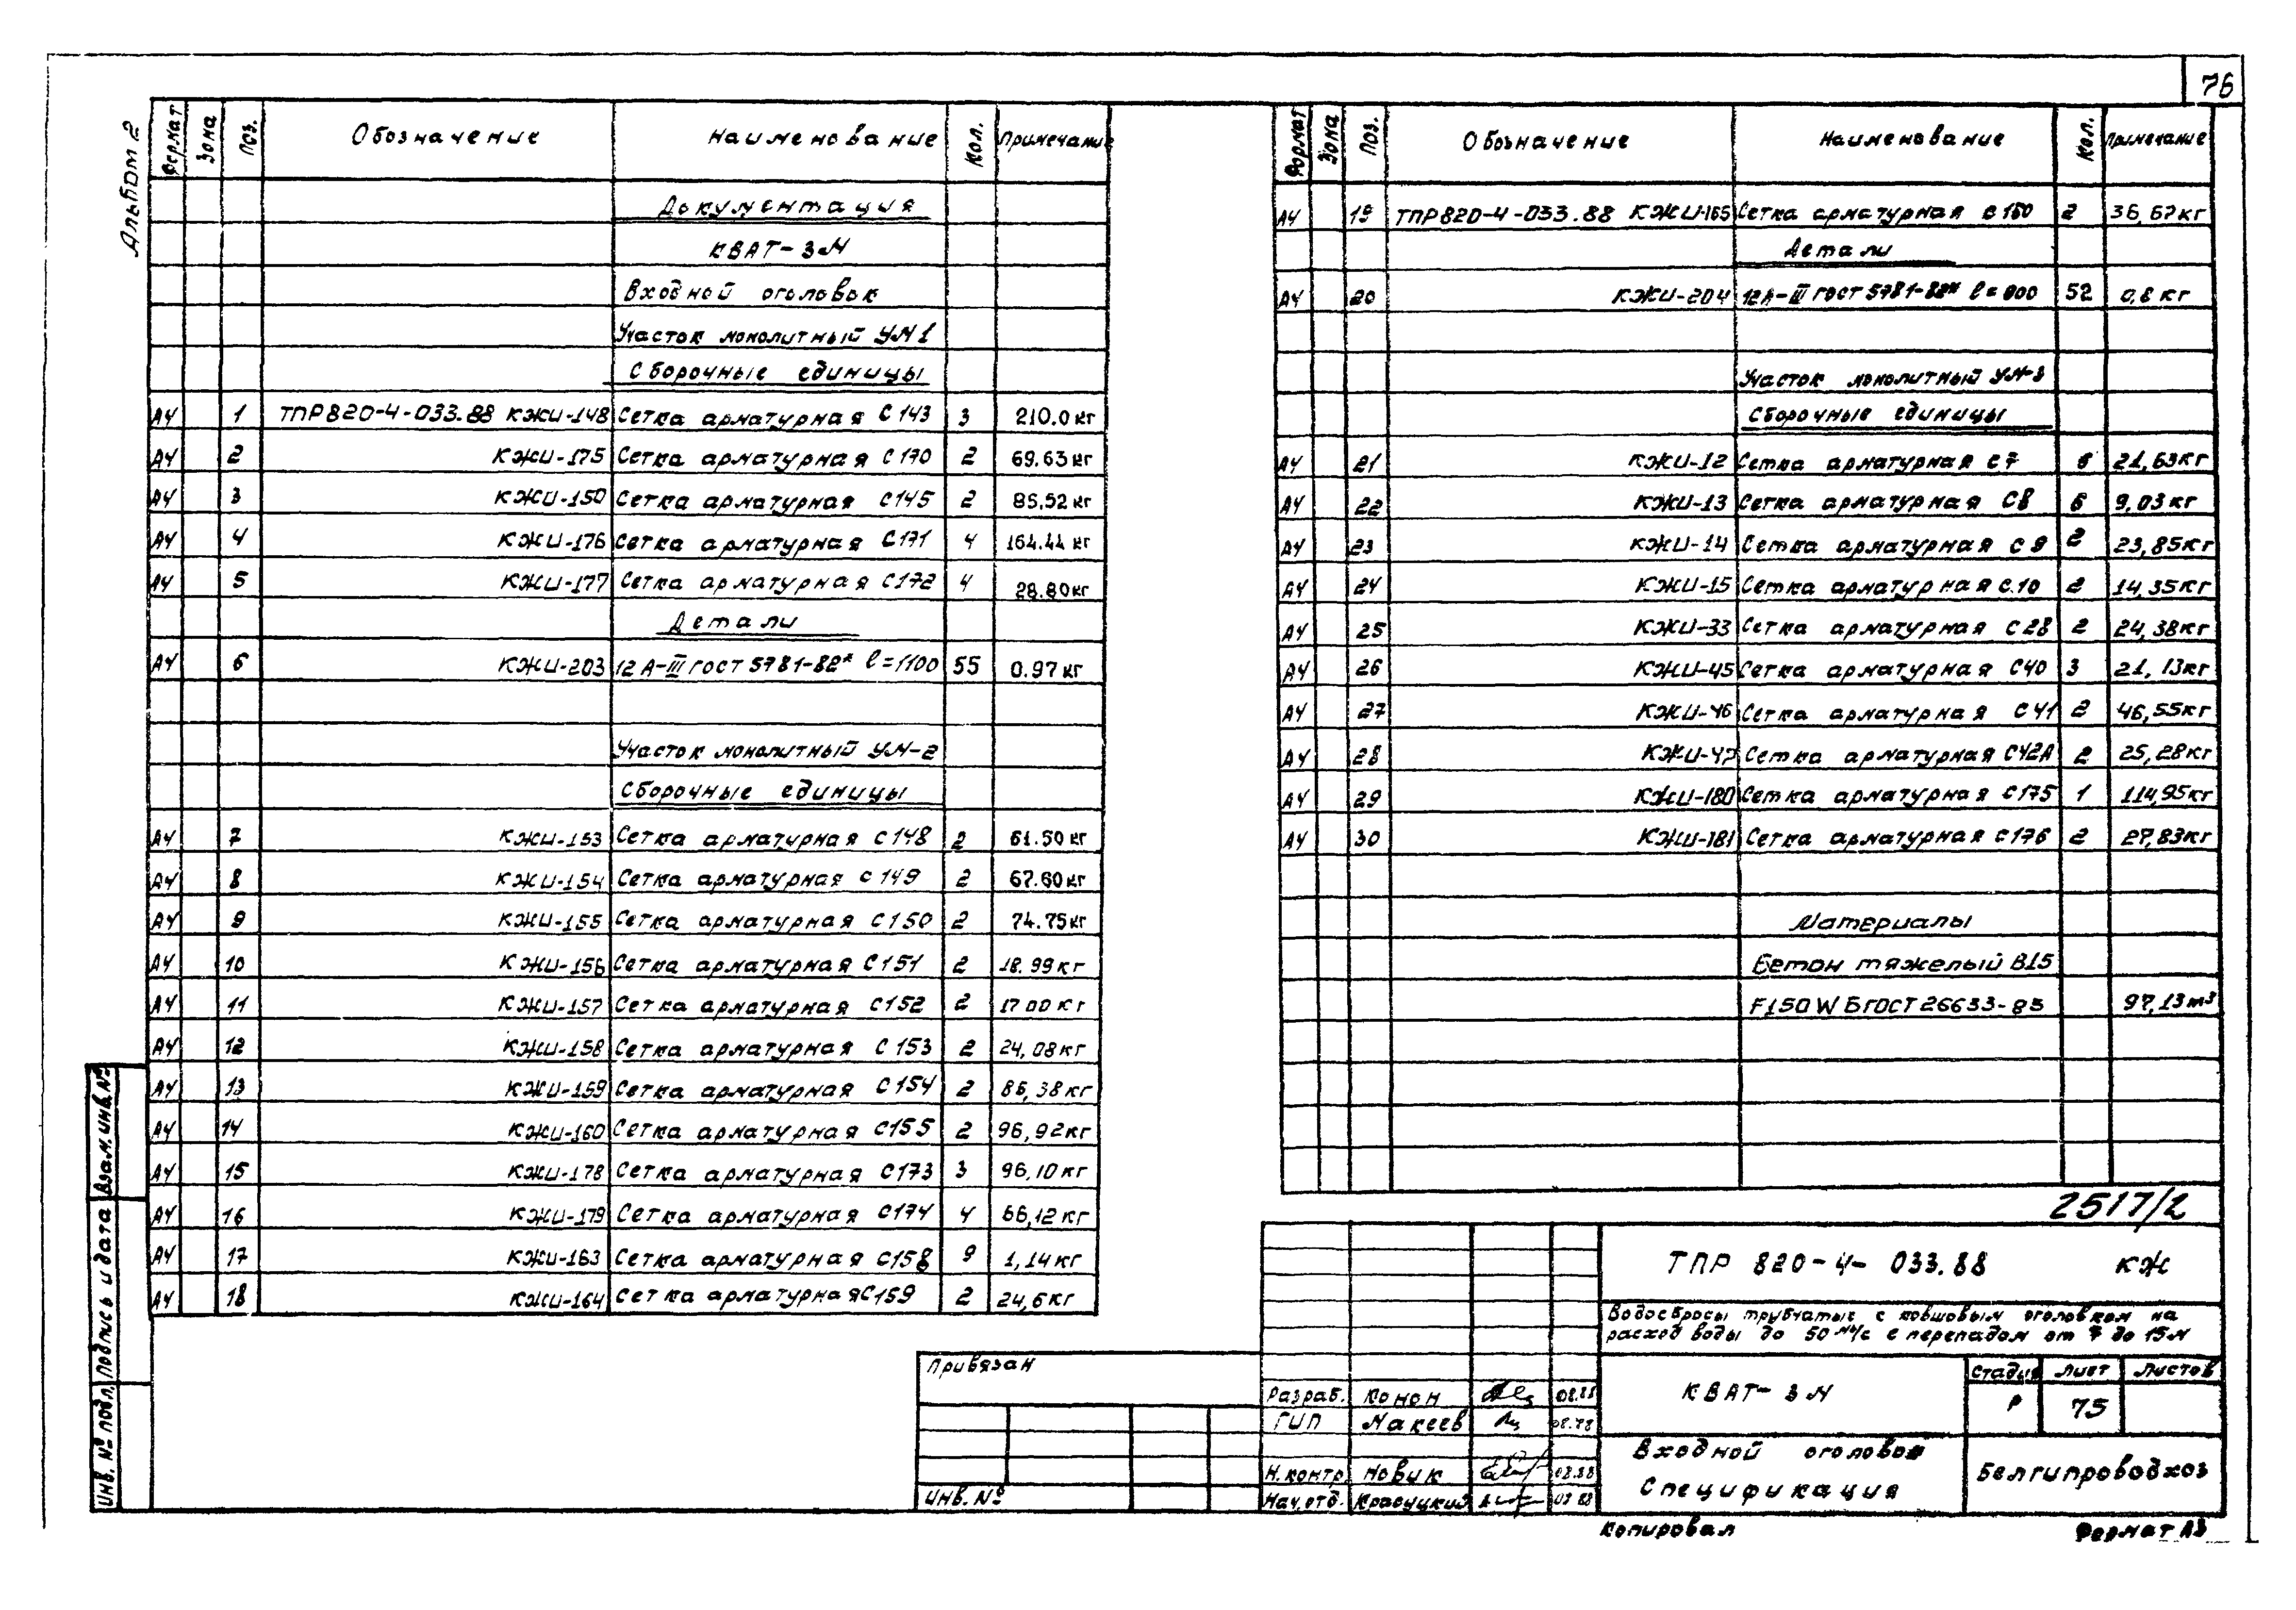 76
Альбом 2
Формат Зона Поз. Обозначение Наименование Кол. Примечание
Документация
КВАТ-3М
Входной оголовок
Участок монолитный УМ1
Сборочные единицы
А4 1 ТПР820-4-033.88 КЖИ-148 Сетка арматурная С143 3 210.0кг
А4 2 КЖИ-175 Сетка арматурная С170 2 69.63кг
А4 3 КЖИ-150 Сетка арматурная С145 2 85,52кг
А4 4 КЖИ-176 Сетка арматурная С171 4 164.44кг
А4 5 КЖИ-177 Сетка арматурная С172 4 28.80кг
Детали
А4 6 КЖИ-203 12А-III ГОСТ 5781-82* ℓ=1100 55 0.97кг
Участок монолитный УМ-2
Сборочные единицы
А4 7 КЖИ-153 Сетка арматурная С148 2 61.50кг
А4 8 КЖИ-154 Сетка арматурная С149 2 67.60кг
А4 9 КЖИ-155 Сетка арматурная С150 2 74.75кг
А4 10 КЖИ-156 Сетка арматурная С151 2 18.99кг
А4 11 КЖИ-157 Сетка арматурная С152 2 17 00 кг
А4 12 КЖИ-158 Сетка арматурная С153 2 24,08кг
А4 13 КЖИ-159 Сетка арматурная С154 2 86,38кг
А4 14 КЖИ-160 Сетка арматурная С155 2 96,92кг
А4 15 КЖИ-178 Сетка арматурная С173 3 96,10кг
А4 16 КЖИ-179 Сетка арматурная С174 4 66,12кг
А4 17 КЖИ-163 Сетка арматурная С158 9 1,14кг
А4 18 КЖИ-164 Сетка арматурная С159 2 24,6кг
Формат Зона Поз. Обозначение Наименование Кол. Примечание
А4 19 ТПР820-4-033.88 КЖИ-165 Сетка арматурная С160 2 36,67кг
Детали
А4 20 КЖИ-204 12А-III ГОСТ 5781-82* ℓ=900 52 0,8кг
Участок монолитный УМ-3
Сборочные единицы
А4 21 КЖИ-12 Сетка арматурная С7 6 21,63кг
А4 22 КЖИ-13 Сетка арматурная С8 6 9,03кг
А4 23 КЖИ-14 Сетка арматурная С9 2 23,85кг
А4 24 КЖИ-15 Сетка арматурная С.10 2 14,35кг
А4 25 КЖИ-33 Сетка арматурная С28 2 24,38кг
А4 26 КЖИ-45 Сетка арматурная С40 3 21,13кг
А4 27 КЖИ-46 Сетка арматурная С41 2 46,55кг
А4 28 КЖИ-47 Сетка арматурная С42А 2 25,28кг
А4 29 КЖИ-180 Сетка арматурная С175 1 114,95кг
А4 30 КЖИ-181 Сетка арматурная С176 2 27,83кг
Материалы
Бетон тяжелый В15
F150 W6 ГОСТ 26633-85 97,13м³
2517/2
ТПР 820-4-033.88 КЖ
Водосбросы трубчатые с ковшовым оголовком на
расход воды до 50 м³/с с перепадом от 7 до 15м
КВАТ-3М
Стадия Лист Листов
Р 75
Входной оголовок
Спецификация
Белгипроводхоз
Привязан
Инв. №
Разраб. Конон 08.88
ГИП Макеев 08.88
Н.контр. Новик 08.88
Нач.отд. Красуцкий 08 88
Взам.инв.№
Подпись и дата
Инв. № подл.
Копировал
Формат А3